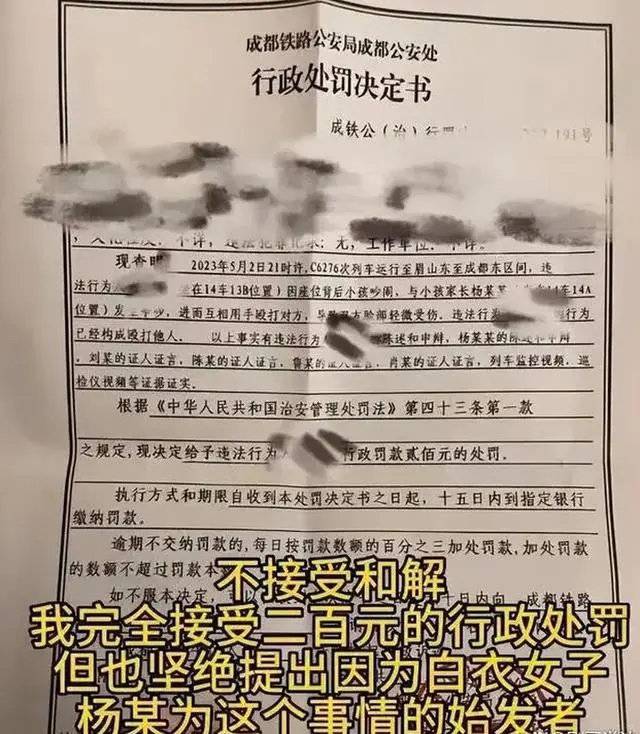 成都铁路公安局成都公安处
行政处罚决定书
成铁公(治)行罚 191号
违法犯罪记录:无,工作单位:不详。
现查明 2023年5月2日21时许,C6276次列车运行至眉山东至成都东区间,违
法行为 在14车13B位置)因座位背后小孩吵闹,与小孩家长杨某 14车14A
位置)发生 ,进而互相用手殴打对方,导致双方脸部轻微受伤。违法行为 行为
已经构成殴打他人。 以上事实有违法行为 陈述和申辩,杨某某的陈述和申辩
,刘某的证人证言,陈某的证人证言,鲁某的证人证言,肖某的证人证言,列车监控视频,巡
检仪视频等证据证实。
根据《中华人民共和国治安管理处罚法》第四十三条第一款
之规定,现决定给予违法行为 行政罚款贰佰元的处罚。
执行方式和期限自收到本处罚决定书之日起,十五日内到指定银行
缴纳罚款。
逾期不交纳罚款的,每日按罚款数额的百分之三加处罚款,加处罚款
的数额不超过罚款本
如不服本决定,可以 十日内向 成都铁路
不接受和解
我完全接受二百元的行政处罚
但也坚绝提出因为白衣女子
杨某为这个事情的始发者